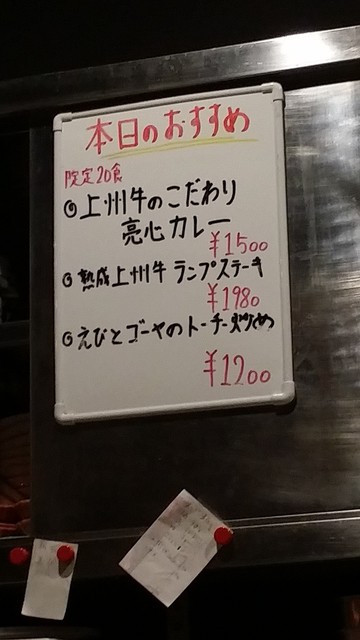 本日のおすすめ
限定20食
◎上州牛のこだわり
亮心カレー
¥1500
◎熟成上州牛ランプステーキ
¥1980
◎えびとゴーヤのトーチ炒め
¥1200